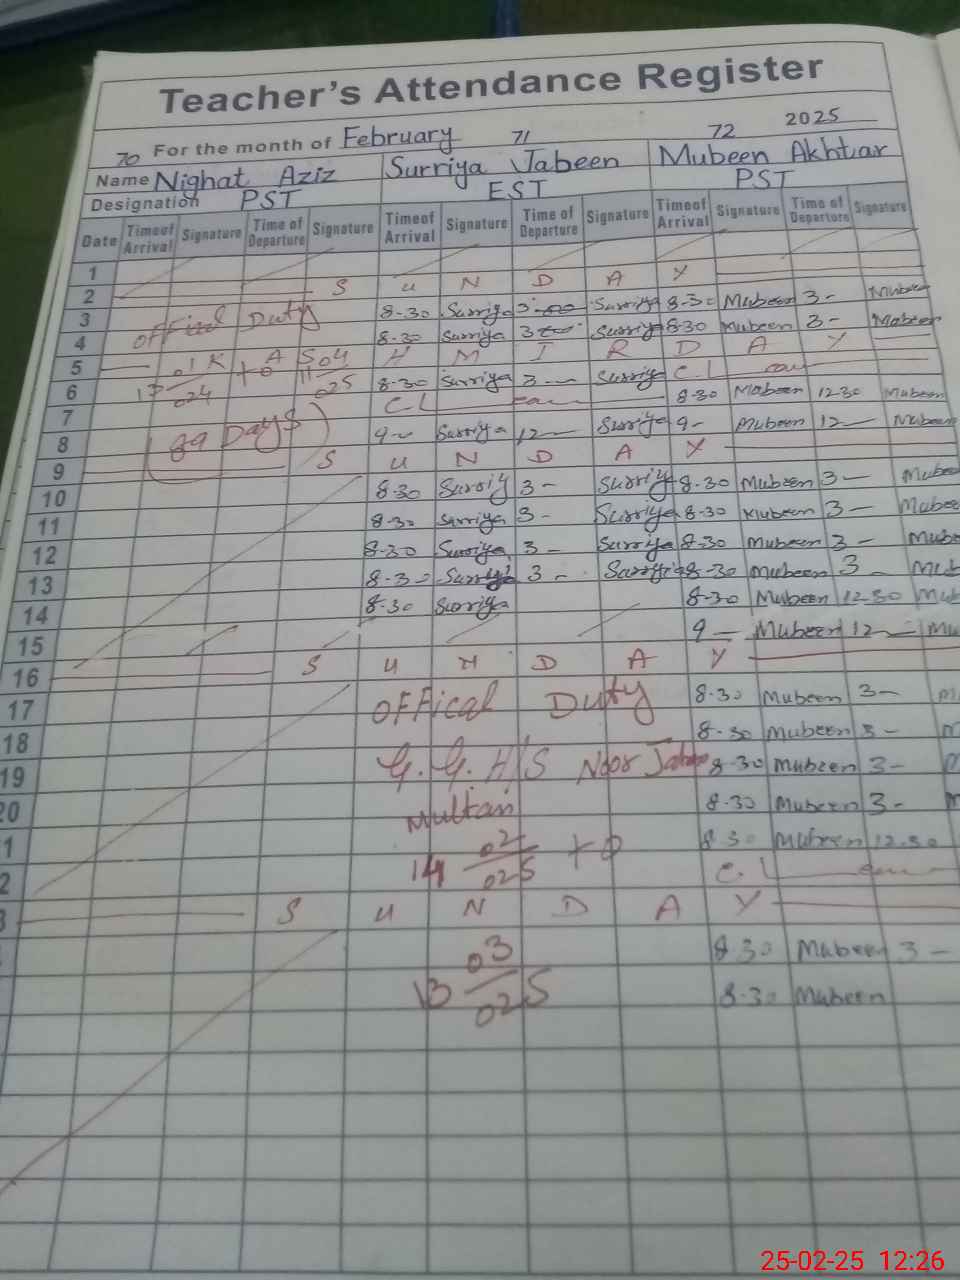 Teacher's Attendance Register
For the month of February 2025
70 71 72
Name Nighat Aziz Surriya Jabeen Mubeen Akhtar
Designation PST EST PST
Date Time of Arrival Signature Time of Departure Signature Timeof Arrival Signature Time of Departure Signature Timeof Arrival Signature Time of Departure Signature
1
2 S U N D A Y
3 8-30 Surriya 3-00 Surriya 8-30 Mubeen 3- Mubeen
offical Duty
4 8-30 Surriya 3 Surriya 8-30 Mubeen 3- Mubeen
5 K A S H M I R D A Y
01 04
6 17 024 to 11 025 8-30 Surriya 3- Surriya C.L
7 C L 8-30 Mubeen 12-30 Mubeen
8 (89 Days) 9- Surriya 12- Surriya 9- Mubeen 12- Mubeen
9 S U N D A Y
10 8-30 Surriy 3- Surriya 8-30 Mubeen 3- Mubee
11 8-30 Surriya 3- Surriya 8-30 Mubeen 3- Mubee
12 8-30 Surriya 3- Surriya 8-30 Mubeen 3- Mube
13 8-30 Surriya 3- Surriya 8-30 Mubeen 3- Mub
14 8-30 Surriya 8-30 Mubeen 12-30 Mub
15 9- Mubeen 12- Mu
16 S U N D A Y
17 OFFical Duty 8-30 Mubeen 3- M
18 8-30 Mubeen 3- M
19 G.G.H/S Noor Jahan 8-30 Mubeen 3- M
20 Multan 8-30 Mubeen 3- M
1 14 02 025 to 8-30 Mubeen 12-30
2 C.L
3 S U N D A Y
13 03 025 8-30 Mubeen 3-
8-30 Mubeen
25-02-25 12:26